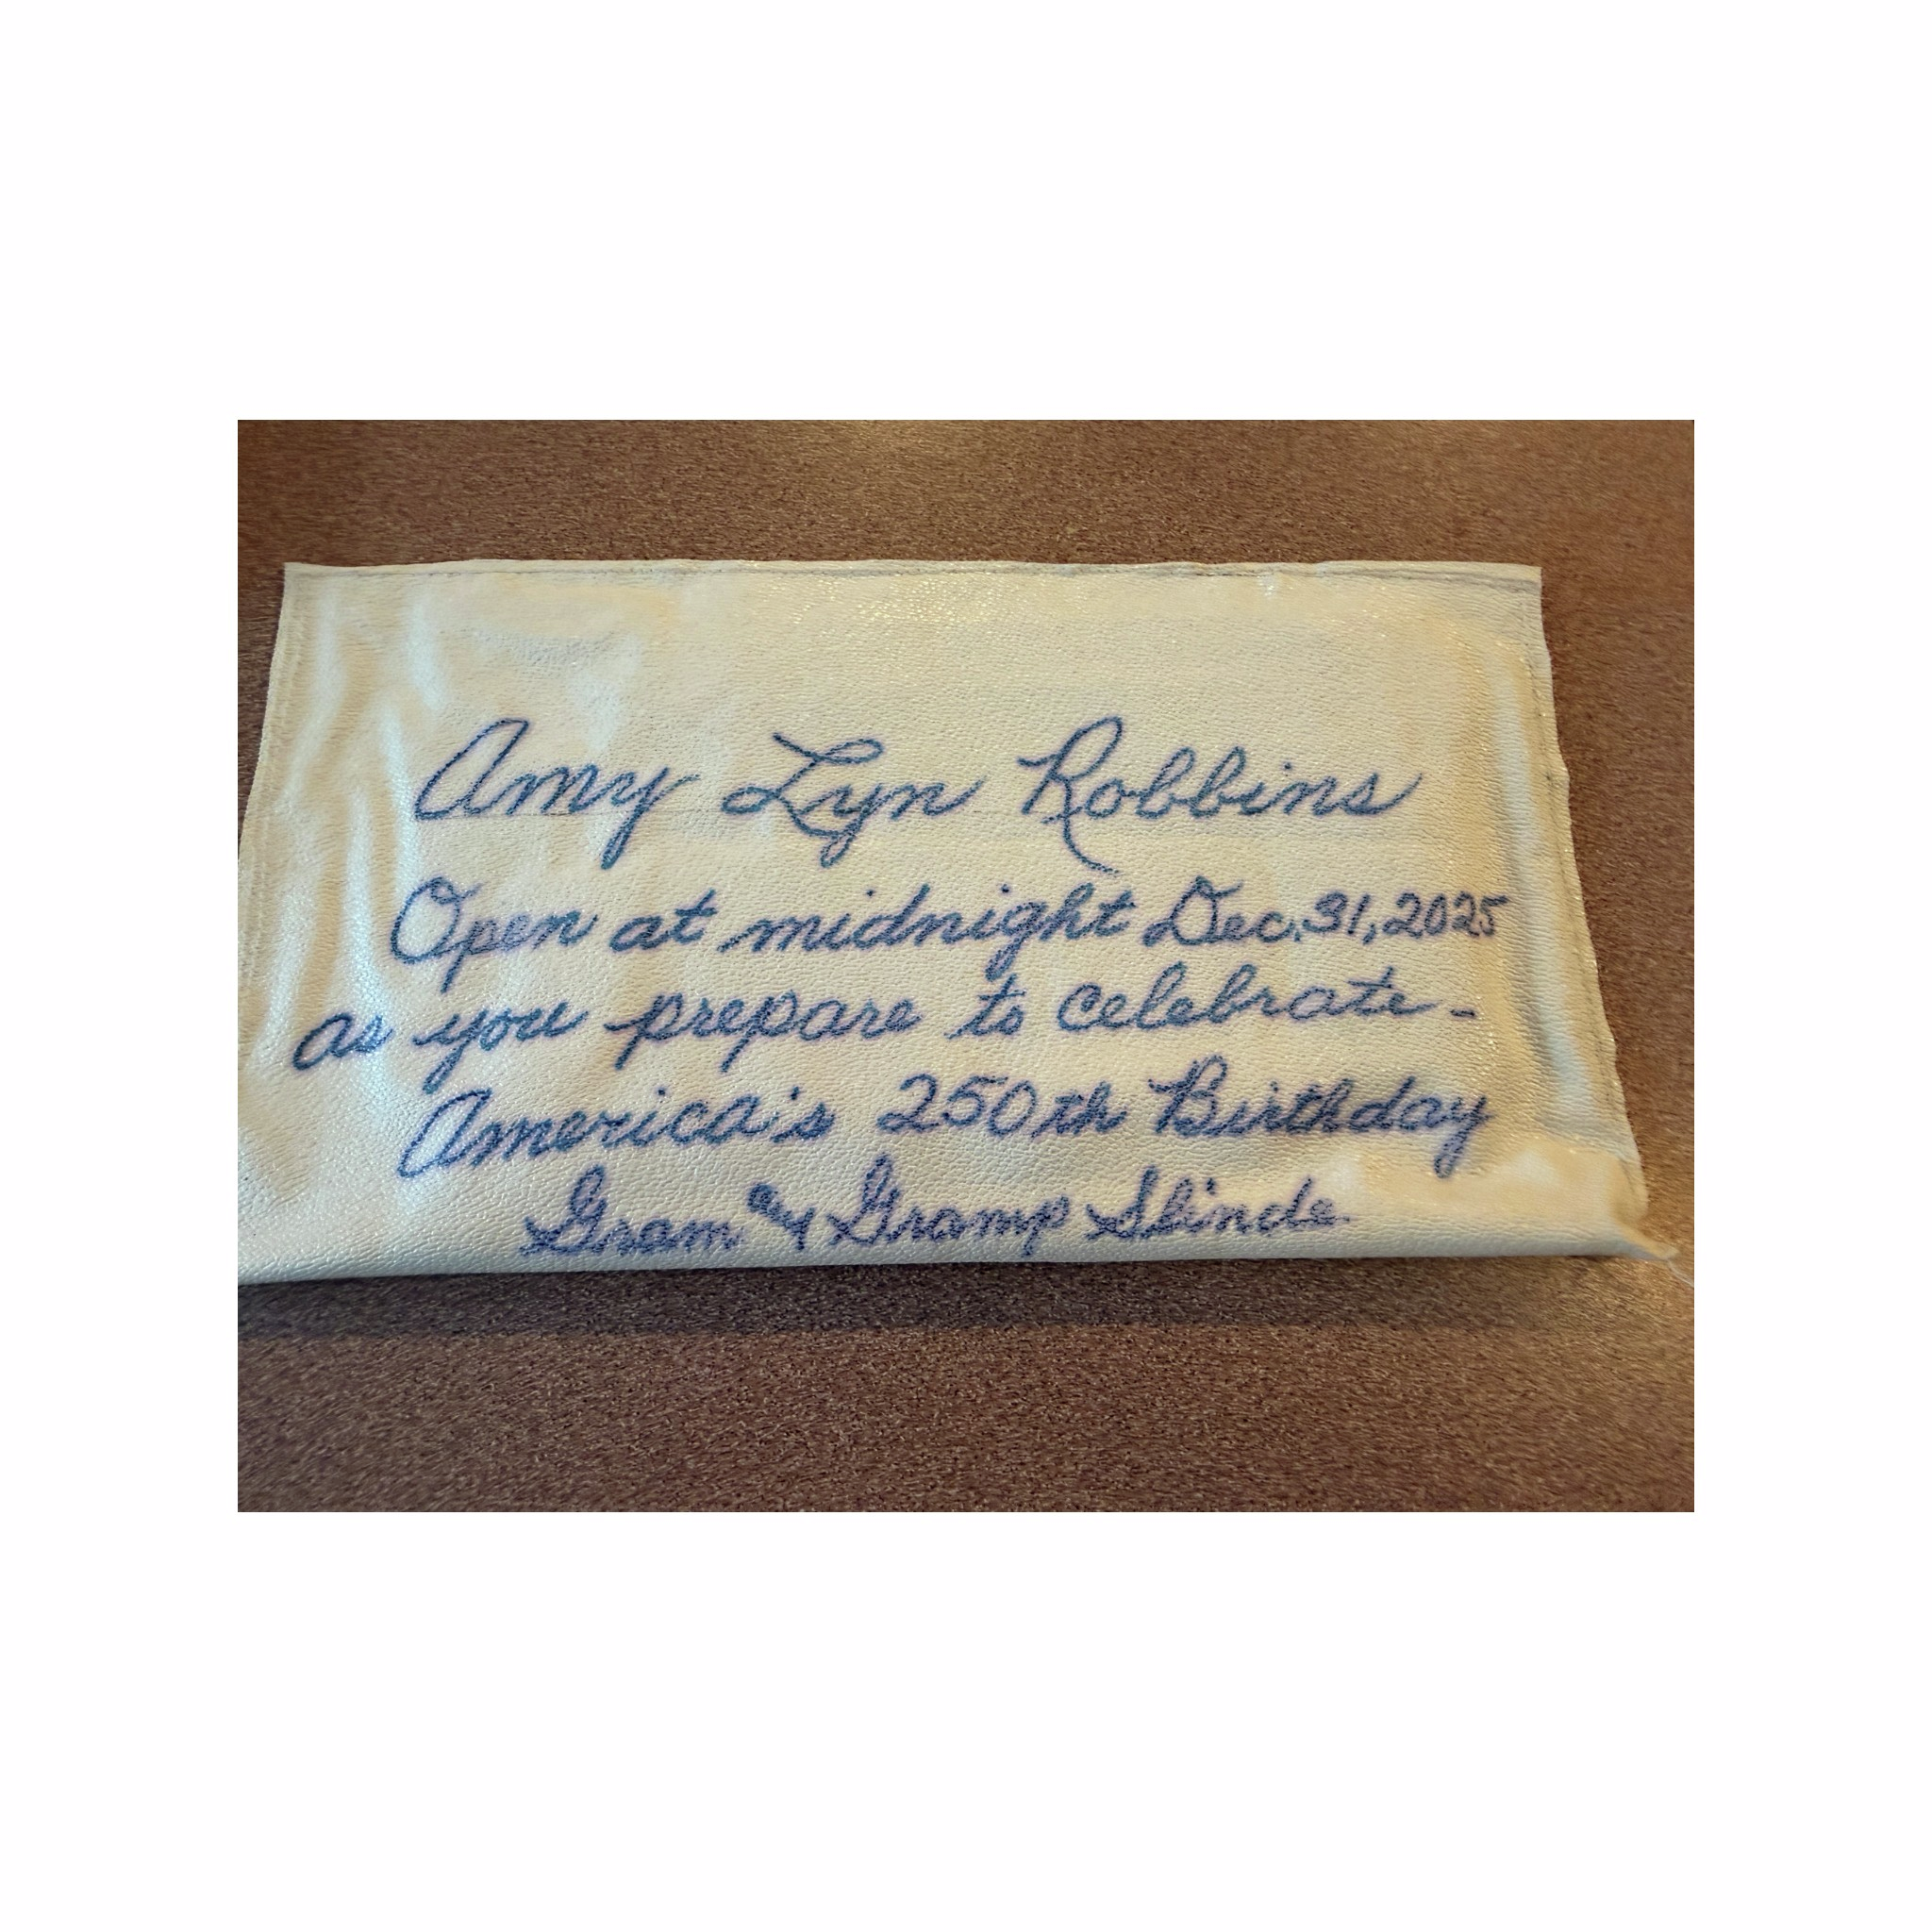 Amy Lyn Robbins
Open at midnight Dec. 31, 2025
as you prepare to celebrate -
America's 250th Birthday
Gram & Gramp Slinde